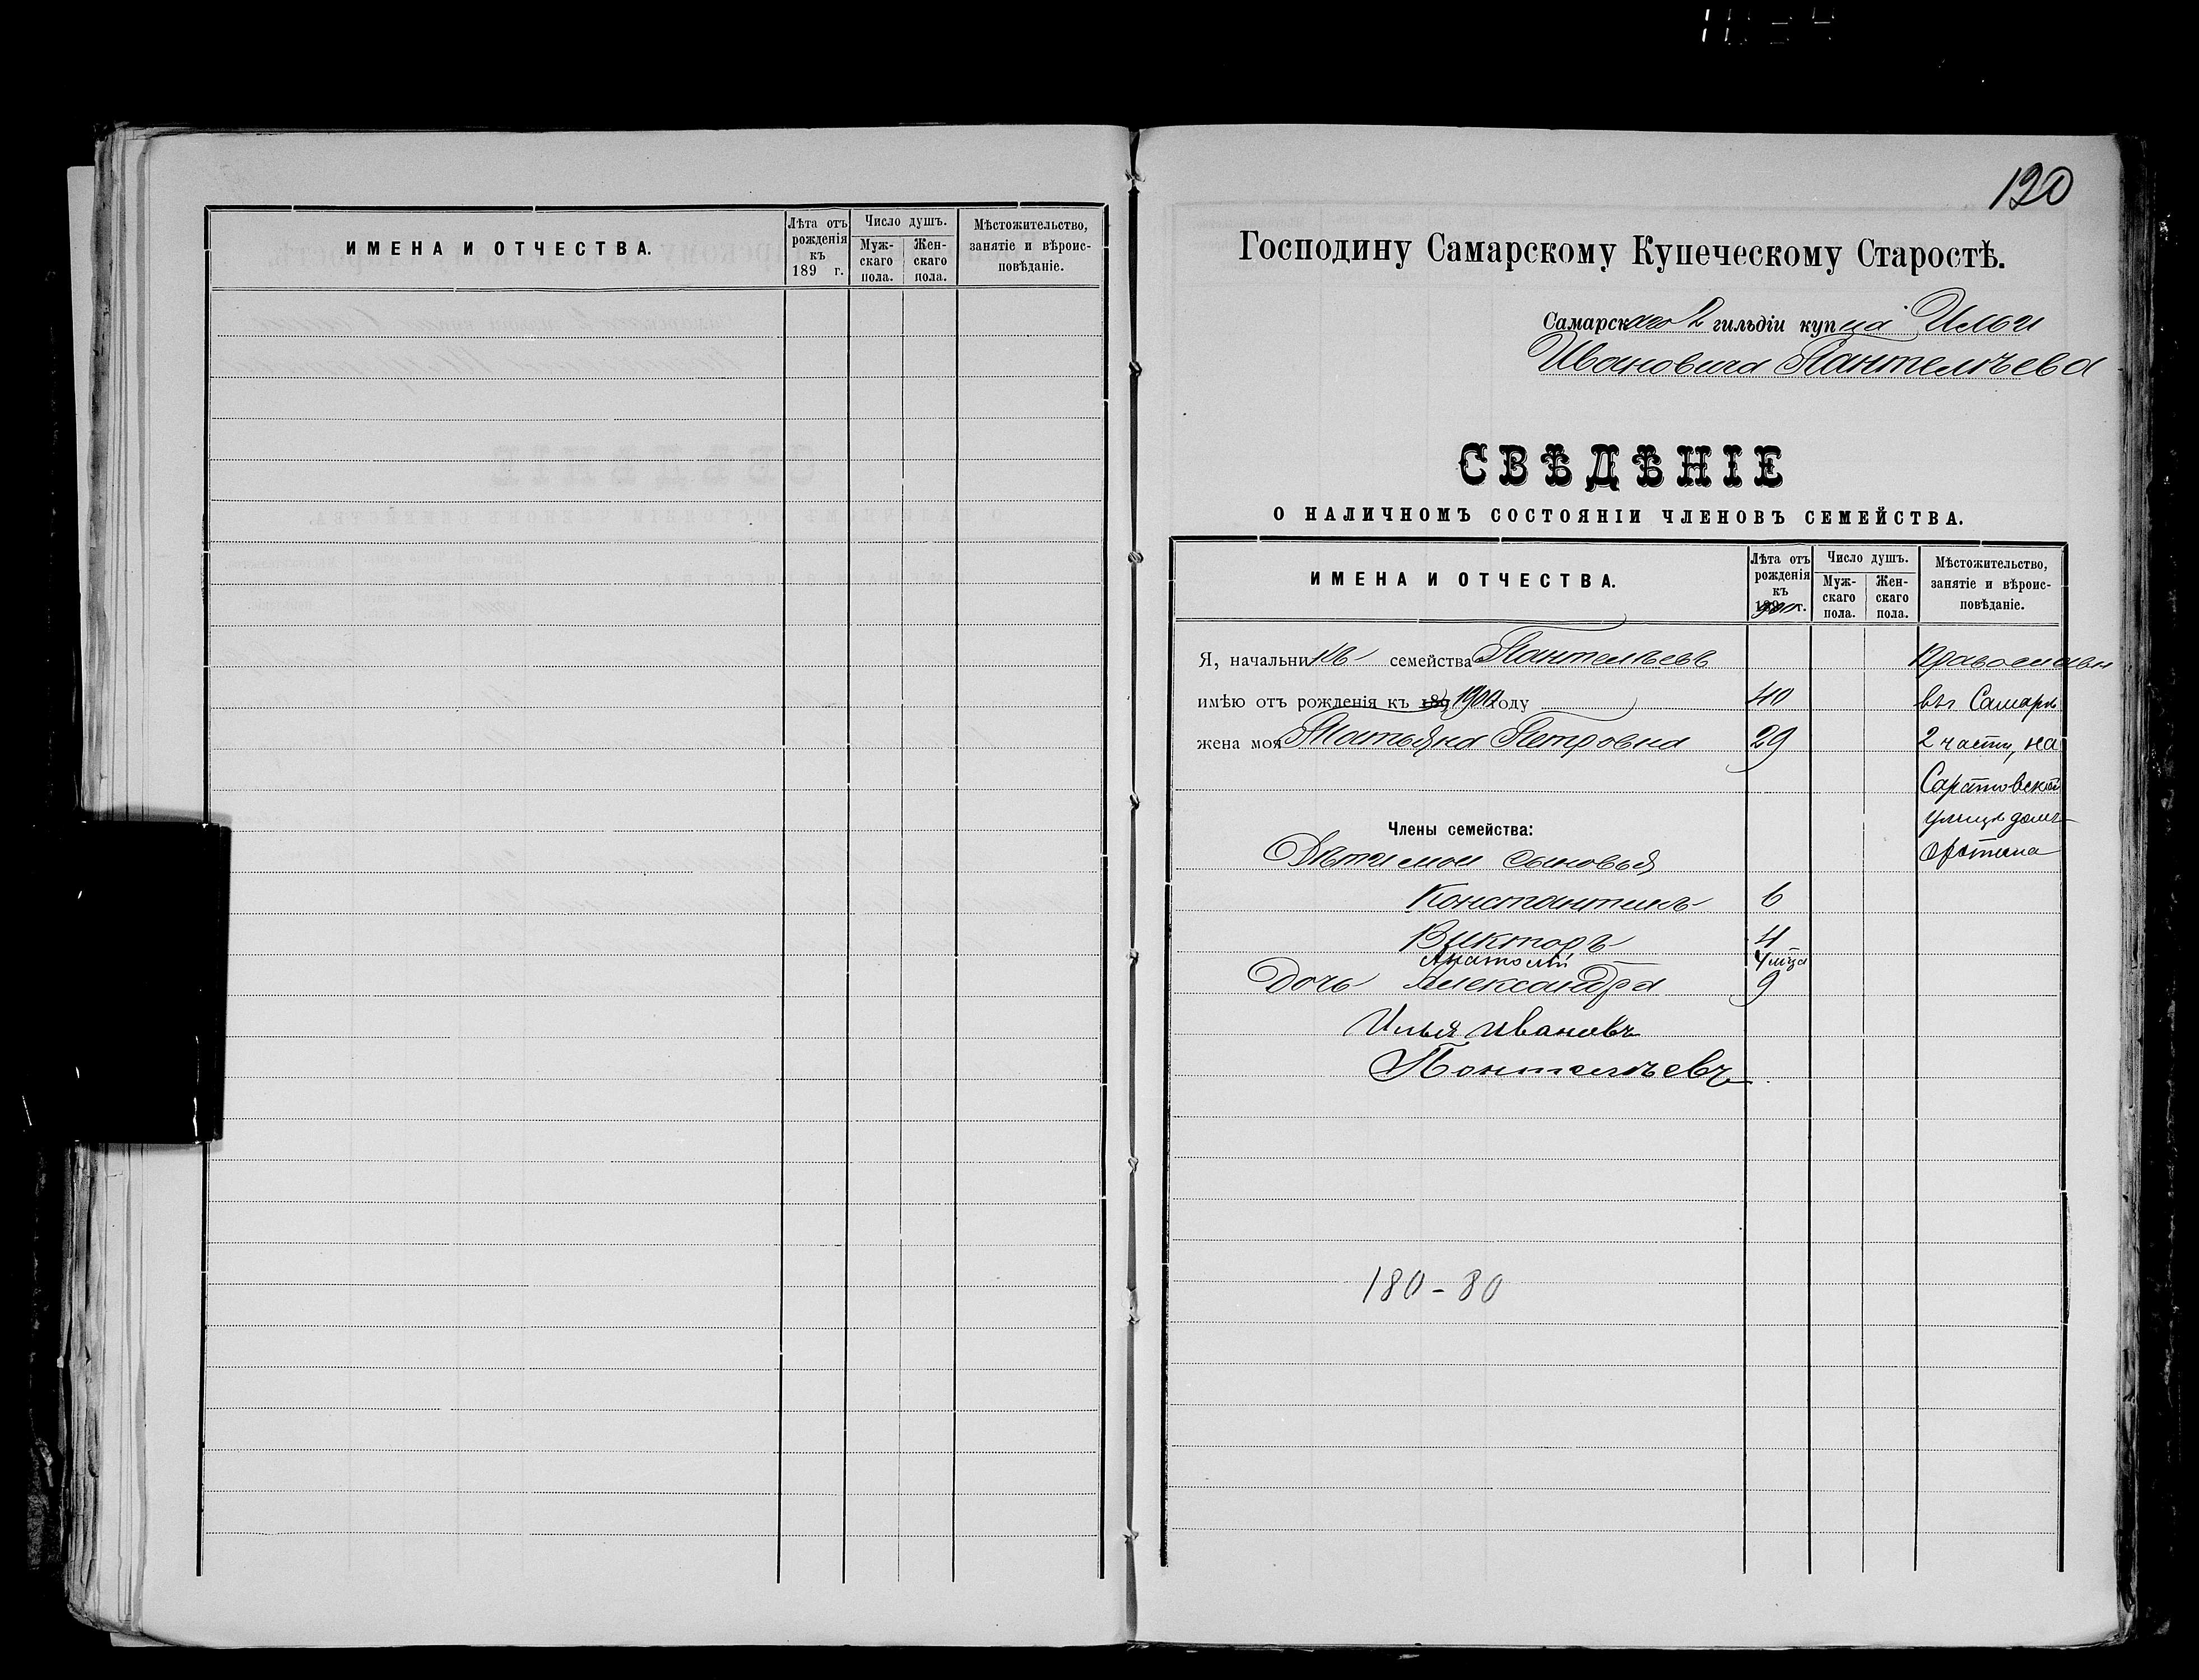 ИМЕНА И ОТЧЕСТВА.
Лѣта отъ рожденія къ 189 г.
Число душъ.
Мужскаго пола.
Женскаго пола.
Мѣстожительство, занятіе и вѣроисповѣданіе.
120
Господину Самарскому Купеческому Старостѣ.
Самарскаго 2 гильдіи купца Ильи
Ивановича Пантелѣева
СВѢДѢНІЕ
О НАЛИЧНОМЪ СОСТОЯНІИ ЧЛЕНОВЪ СЕМЕЙСТВА.
ИМЕНА И ОТЧЕСТВА.
Лѣта отъ рожденія къ 1900 г.
Число душъ.
Мужскаго пола.
Женскаго пола.
Мѣстожительство, занятіе и вѣроисповѣданіе.
Я, начальникъ семейства Пантелѣевъ Православн
имѣю отъ рожденія къ 189 1900 году 40 въ г Самарѣ
жена моя Татьяна Петровна 29 2 части, на
Саратовской
улицѣ домъ
Члены семейства:
Дѣти мои сыновья
Константинъ 6
Викторъ 4
Анатолій 4 мца
Дочь Александра 9
Илья Ивановъ
Пантелѣевъ
180-80